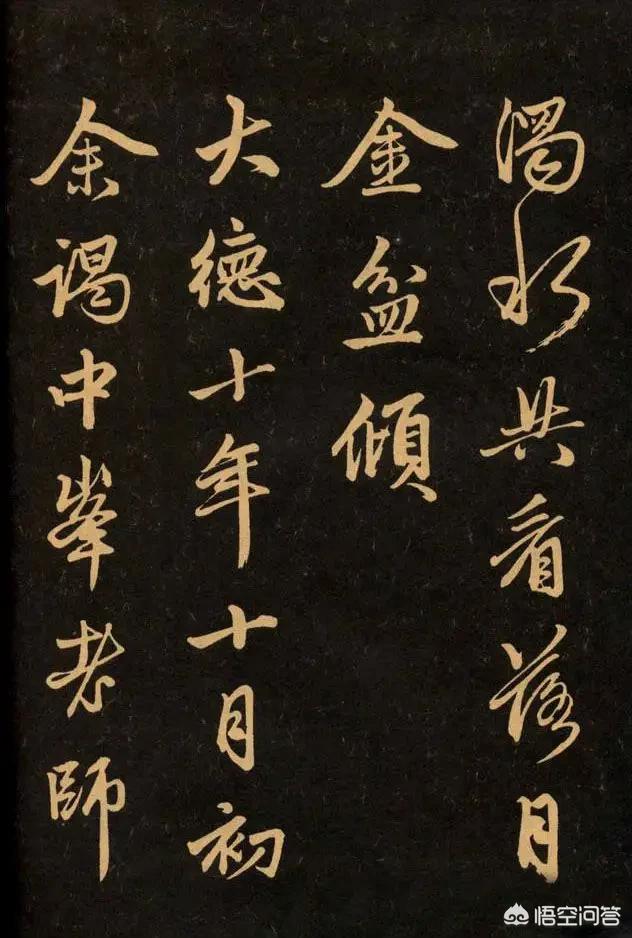 渴水共看落月
金盆傾
大德十年十月初
余謁中峯老師
悟空问答